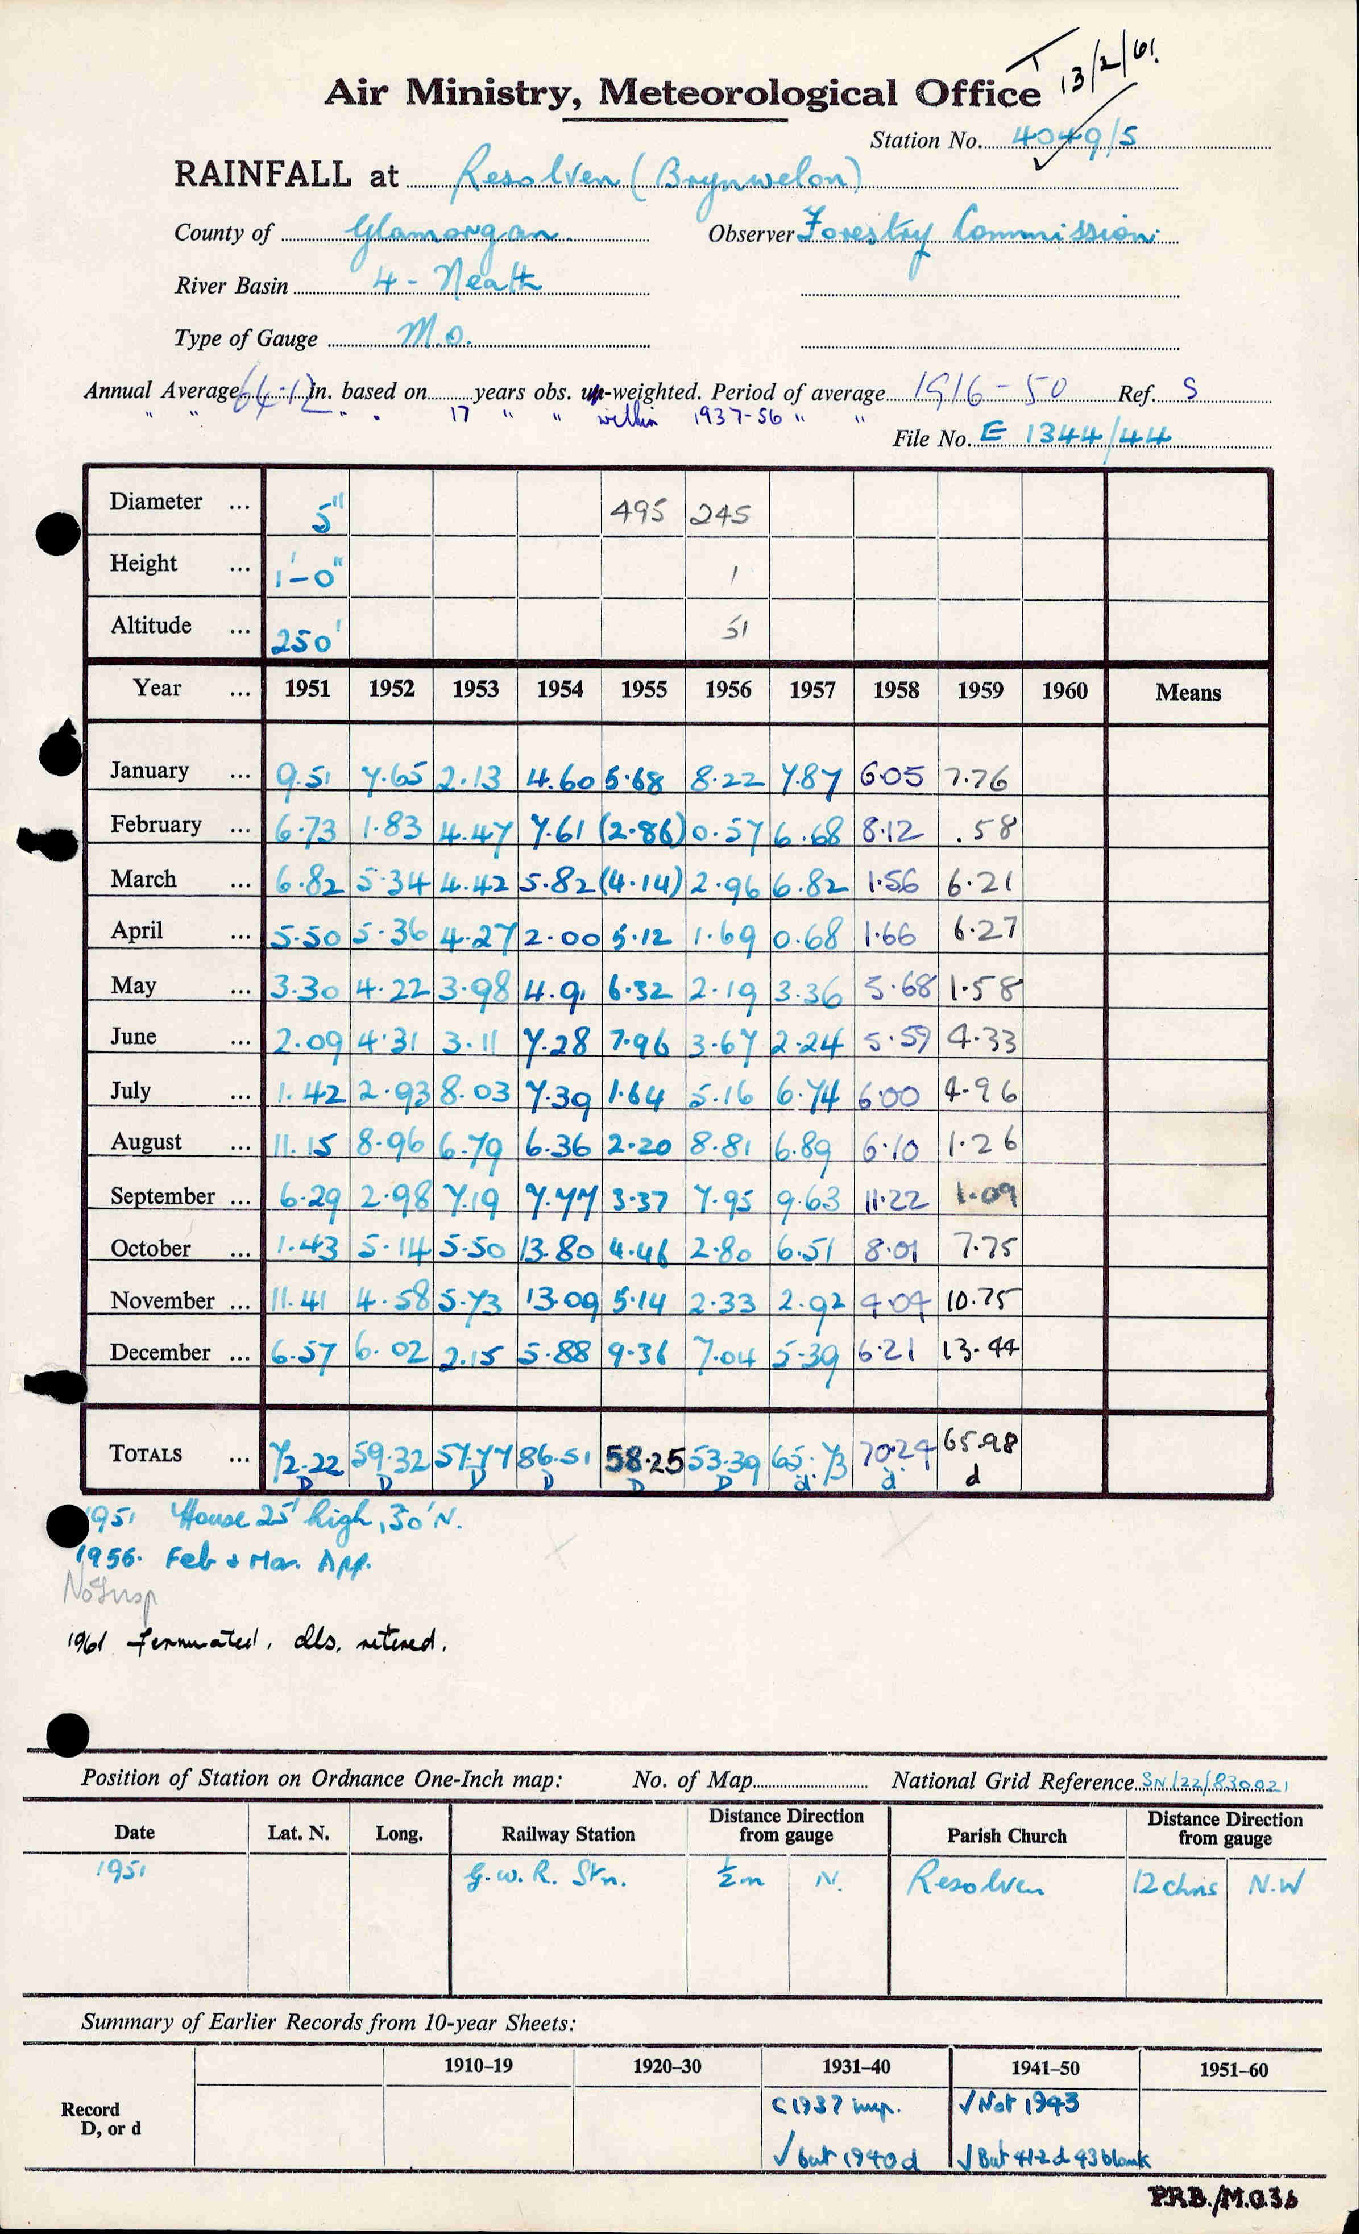 T 13/2/61.
Air Ministry, Meteorological Office
Station No. 4049/5
RAINFALL at Resolven (Brynwelon)
County of Glamorgan. Observer Forestry Commission.
River Basin 4 - Neath
Type of Gauge M.O.
Annual Average 64.12 in. based on years obs. up-weighted. Period of average 1916-50 Ref. S
" " " " 17 " " within 1937-56 " "
File No. E 1344/44
Diameter ... 5" 495 245
Height ... 1'-0" 1
Altitude ... 250' 51
Year ... 1951 1952 1953 1954 1955 1956 1957 1958 1959 1960 Means
January ... 9.51 7.65 2.13 4.60 5.68 8.22 7.87 6.05 7.76
February ... 6.73 1.83 4.47 7.61 (2.86) 0.57 6.68 8.12 .58
March ... 6.82 5.34 4.42 5.82 (4.14) 2.96 6.82 1.56 6.21
April ... 5.50 5.36 4.27 2.00 5.12 1.69 0.68 1.66 6.27
May ... 3.30 4.22 3.98 4.91 6.32 2.19 3.36 5.68 1.58
June ... 2.09 4.31 3.11 7.28 7.96 3.67 2.24 5.59 4.33
July ... 1.42 2.93 8.03 7.39 1.64 5.16 6.74 6.00 4.96
August ... 11.15 8.96 6.79 6.36 2.20 8.81 6.89 6.10 1.26
September ... 6.29 2.98 7.19 7.77 3.37 7.95 9.63 11.22 1.09
October ... 1.43 5.14 5.50 13.80 4.46 2.80 6.51 8.01 7.75
November ... 11.41 4.58 5.73 13.09 5.14 2.33 2.92 4.04 10.75
December ... 6.57 6.02 2.15 5.88 9.36 7.04 5.39 6.21 13.44
TOTALS ... 72.22 59.32 57.77 86.51 58.25 53.39 65.73 70.24 65.98
D D D D D D d. d. d
1951 House 25' high, 30' N.
1956. Feb & Mar. App.
No Insp
1961 Terminated. Obs. retired.
Position of Station on Ordnance One-Inch map: No. of Map National Grid Reference SN/22/830021
Date Lat. N. Long. Railway Station Distance Direction from gauge Parish Church Distance Direction from gauge
1951 G.W.R. Stn. ½ m N. Resolven 12 chns N.W
Summary of Earlier Records from 10-year Sheets:
1910–19 1920–30 1931–40 1941–50 1951–60
Record D, or d
C 1937 imp. √ Not 1943
√ but 1940 d √ But 412 d 43 blank
P.R.B./M.O.36